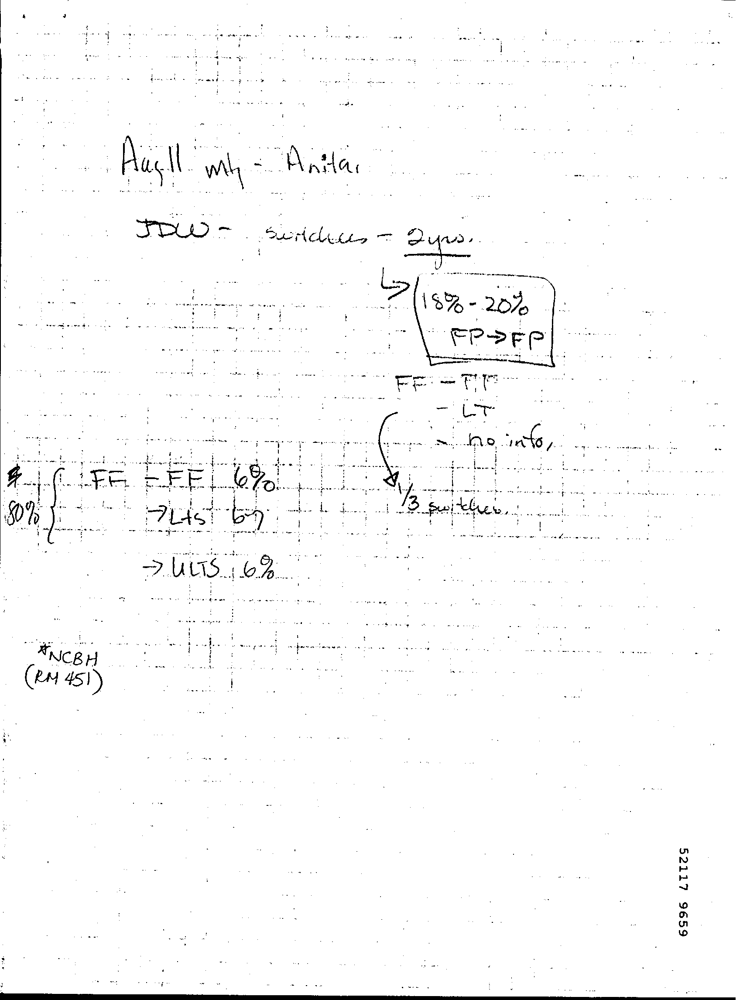 Aug 11 mtg - Anita.
JDW - switches - 2 yrs.
18% - 20%
FP → FP
FF - FF
- LT
- no info.
1/3 switches.
80% { FF - FF 6%
→ Lts 6-7
→ ULTS 6%
*NCBH
(RM 451)
52117 9659